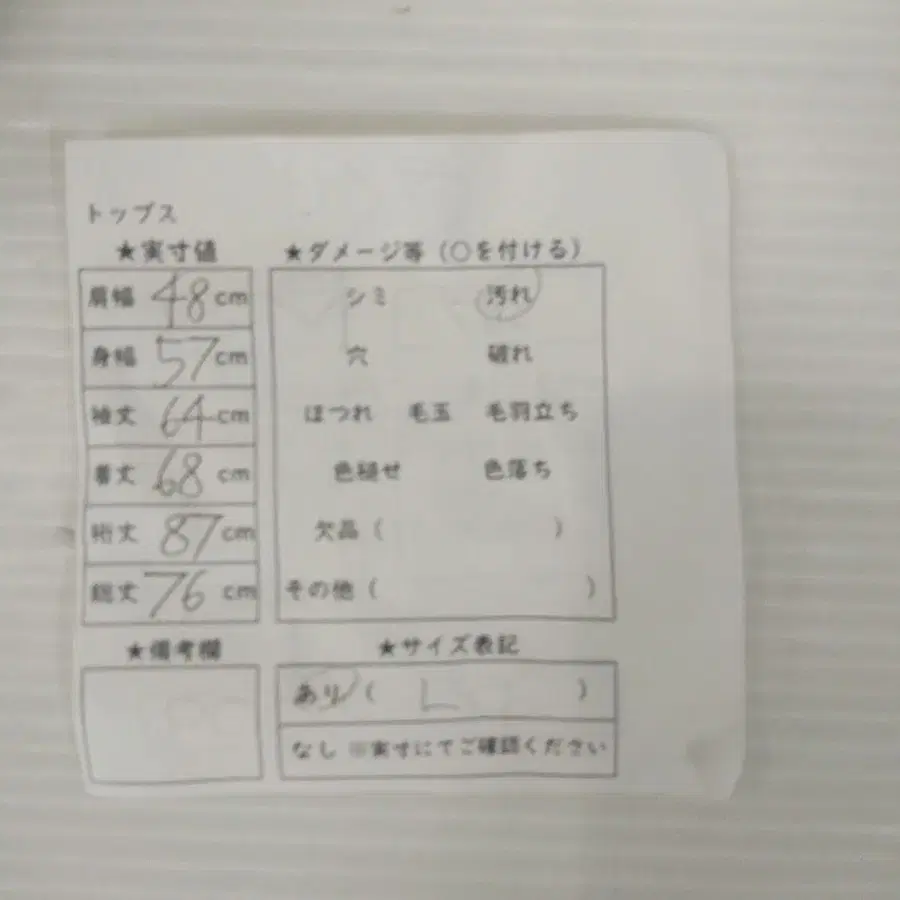 トップス
★実寸値
肩幅 48 cm
身幅 57 cm
袖丈 64 cm
着丈 68 cm
裄丈 87 cm
総丈 76 cm
★備考欄
★ダメージ等（○を付ける）
シミ 汚れ
穴 破れ
ほつれ 毛玉 毛羽立ち
色褪せ 色落ち
欠品（ ）
その他（ ）
★サイズ表記
あり（ L ）
なし ※実寸にてご確認ください